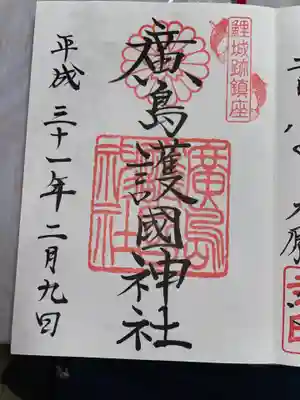 鯉城跡鎮座
廣島護國神社
廣島護國神社
平成三十一年二月九日